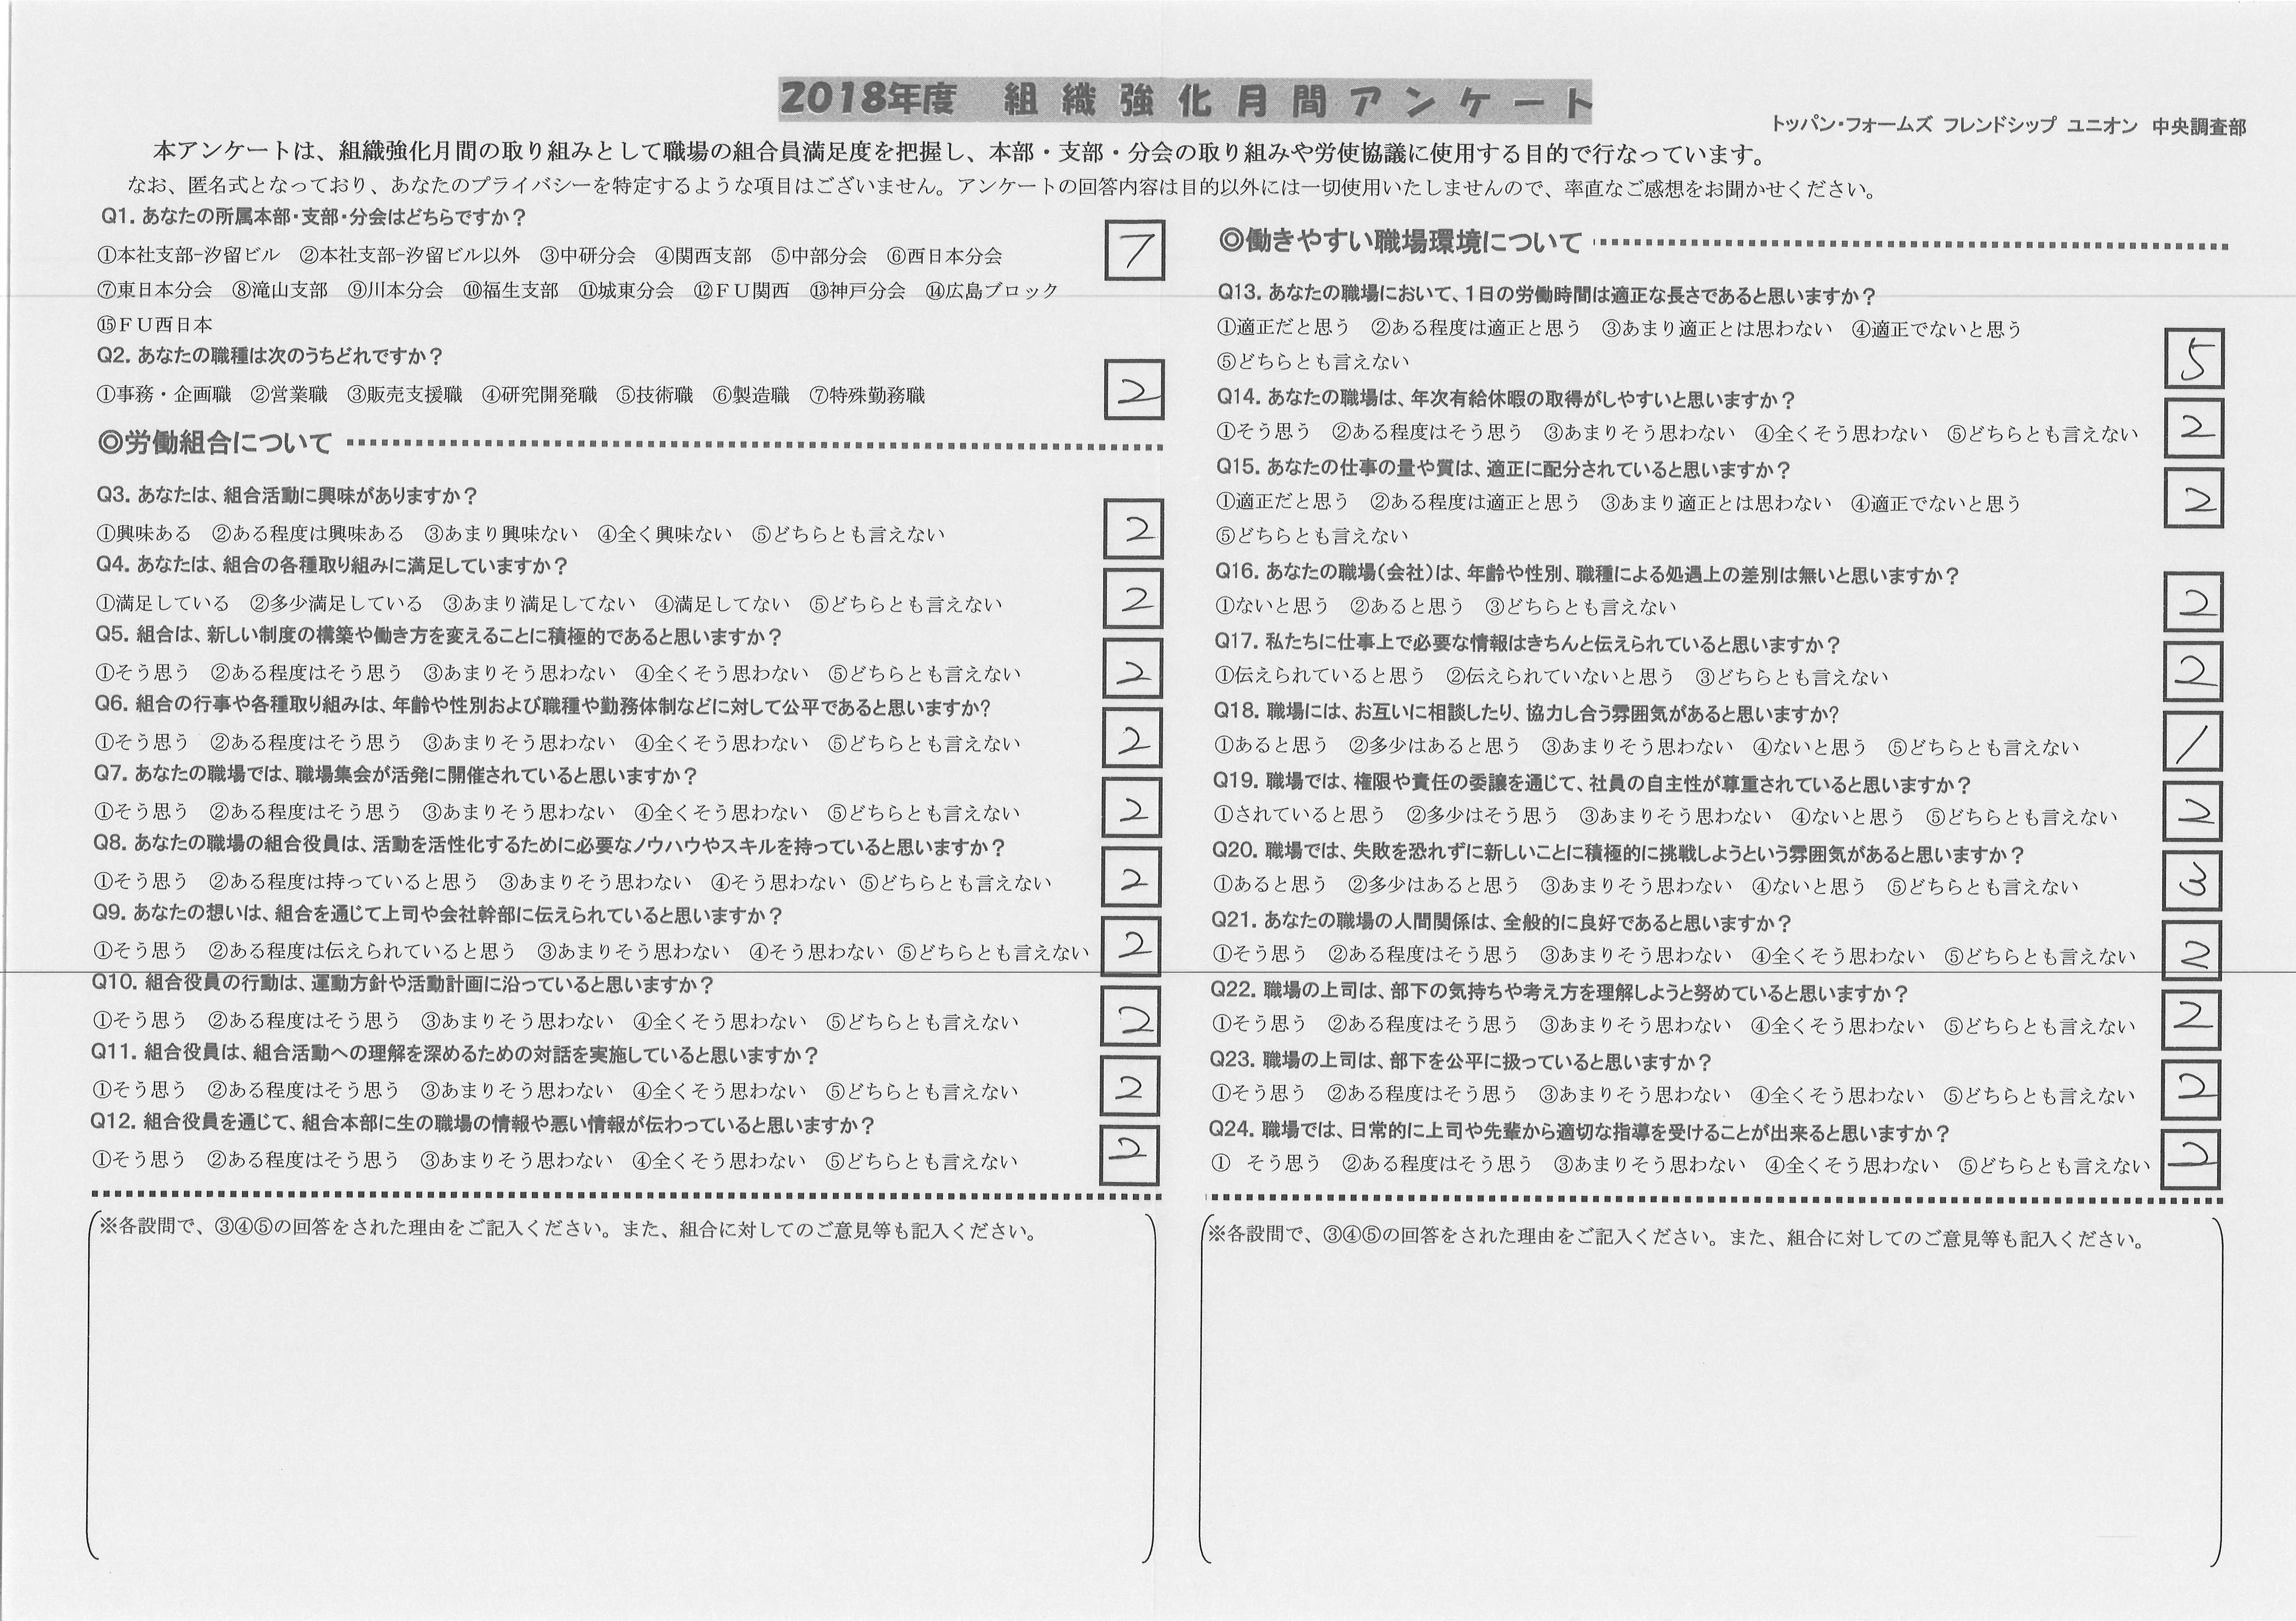 2018年度　組織強化月間アンケート
トッパン・フォームズ フレンドシップ ユニオン 中央調査部
本アンケートは、組織強化月間の取り組みとして職場の組合員満足度を把握し、本部・支部・分会の取り組みや労使協議に使用する目的で行なっています。
なお、匿名式となっており、あなたのプライバシーを特定するような項目はございません。アンケートの回答内容は目的以外には一切使用いたしませんので、率直なご感想をお聞かせください。
Q1. あなたの所属本部・支部・分会はどちらですか？
①本社支部-汐留ビル　②本社支部-汐留ビル以外　③中研分会　④関西支部　⑤中部分会　⑥西日本分会
7
⑦東日本分会　⑧滝山支部　⑨川本分会　⑩福生支部　⑪城東分会　⑫ＦＵ関西　⑬神戸分会　⑭広島ブロック
⑮ＦＵ西日本
Q2. あなたの職種は次のうちどれですか？
①事務・企画職　②営業職　③販売支援職　④研究開発職　⑤技術職　⑥製造職　⑦特殊勤務職
2
◎労働組合について
Q3. あなたは、組合活動に興味がありますか？
①興味ある　②ある程度は興味ある　③あまり興味ない　④全く興味ない　⑤どちらとも言えない
2
Q4. あなたは、組合の各種取り組みに満足していますか？
①満足している　②多少満足している　③あまり満足してない　④満足してない　⑤どちらとも言えない
2
Q5. 組合は、新しい制度の構築や働き方を変えることに積極的であると思いますか？
①そう思う　②ある程度はそう思う　③あまりそう思わない　④全くそう思わない　⑤どちらとも言えない
2
Q6. 組合の行事や各種取り組みは、年齢や性別および職種や勤務体制などに対して公平であると思いますか?
①そう思う　②ある程度はそう思う　③あまりそう思わない　④全くそう思わない　⑤どちらとも言えない
2
Q7. あなたの職場では、職場集会が活発に開催されていると思いますか？
①そう思う　②ある程度はそう思う　③あまりそう思わない　④全くそう思わない　⑤どちらとも言えない
2
Q8. あなたの職場の組合役員は、活動を活性化するために必要なノウハウやスキルを持っていると思いますか？
①そう思う　②ある程度は持っていると思う　③あまりそう思わない　④そう思わない　⑤どちらとも言えない
2
Q9. あなたの想いは、組合を通じて上司や会社幹部に伝えられていると思いますか？
①そう思う　②ある程度は伝えられていると思う　③あまりそう思わない　④そう思わない　⑤どちらとも言えない
2
Q10. 組合役員の行動は、運動方針や活動計画に沿っていると思いますか？
①そう思う　②ある程度はそう思う　③あまりそう思わない　④全くそう思わない　⑤どちらとも言えない
2
Q11. 組合役員は、組合活動への理解を深めるための対話を実施していると思いますか？
①そう思う　②ある程度はそう思う　③あまりそう思わない　④全くそう思わない　⑤どちらとも言えない
2
Q12. 組合役員を通じて、組合本部に生の職場の情報や悪い情報が伝わっていると思いますか？
①そう思う　②ある程度はそう思う　③あまりそう思わない　④全くそう思わない　⑤どちらとも言えない
2
※各設問で、③④⑤の回答をされた理由をご記入ください。また、組合に対してのご意見等も記入ください。
◎働きやすい職場環境について
Q13. あなたの職場において、1日の労働時間は適正な長さであると思いますか？
①適正だと思う　②ある程度は適正と思う　③あまり適正とは思わない　④適正でないと思う
⑤どちらとも言えない
5
Q14. あなたの職場は、年次有給休暇の取得がしやすいと思いますか？
①そう思う　②ある程度はそう思う　③あまりそう思わない　④全くそう思わない　⑤どちらとも言えない
2
Q15. あなたの仕事の量や質は、適正に配分されていると思いますか？
①適正だと思う　②ある程度は適正と思う　③あまり適正とは思わない　④適正でないと思う
2
⑤どちらとも言えない
Q16. あなたの職場（会社）は、年齢や性別、職種による処遇上の差別は無いと思いますか？
①ないと思う　②あると思う　③どちらとも言えない
2
Q17. 私たちに仕事上で必要な情報はきちんと伝えられていると思いますか？
①伝えられていると思う　②伝えられていないと思う　③どちらとも言えない
2
Q18. 職場には、お互いに相談したり、協力し合う雰囲気があると思いますか?
①あると思う　②多少はあると思う　③あまりそう思わない　④ないと思う　⑤どちらとも言えない
1
Q19. 職場では、権限や責任の委譲を通じて、社員の自主性が尊重されていると思いますか？
①されていると思う　②多少はそう思う　③あまりそう思わない　④ないと思う　⑤どちらとも言えない
2
Q20. 職場では、失敗を恐れずに新しいことに積極的に挑戦しようという雰囲気があると思いますか？
①あると思う　②多少はあると思う　③あまりそう思わない　④ないと思う　⑤どちらとも言えない
3
Q21. あなたの職場の人間関係は、全般的に良好であると思いますか？
①そう思う　②ある程度はそう思う　③あまりそう思わない　④全くそう思わない　⑤どちらとも言えない
2
Q22. 職場の上司は、部下の気持ちや考え方を理解しようと努めていると思いますか？
①そう思う　②ある程度はそう思う　③あまりそう思わない　④全くそう思わない　⑤どちらとも言えない
2
Q23. 職場の上司は、部下を公平に扱っていると思いますか？
①そう思う　②ある程度はそう思う　③あまりそう思わない　④全くそう思わない　⑤どちらとも言えない
2
Q24. 職場では、日常的に上司や先輩から適切な指導を受けることが出来ると思いますか？
①　そう思う　②ある程度はそう思う　③あまりそう思わない　④全くそう思わない　⑤どちらとも言えない
2
※各設問で、③④⑤の回答をされた理由をご記入ください。また、組合に対してのご意見等も記入ください。